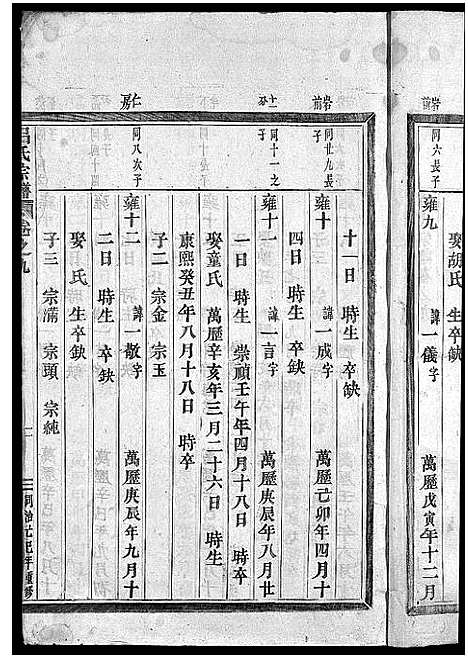 岩前
同六長子
雍九 諱一儀字 萬歷戊寅年十二月
娶胡氏 生卒缺
十一日 時生 卒缺
岩前
同廿九長子
雍十 諱一成字 萬歷己卯年四月十
四日 時生 卒缺
同十一之子
雍十一 諱一言字 萬歷庚辰年八月廿
一日 時生 崇禎壬午年四月十八日 時卒
娶童氏 萬歷辛亥年三月二十六日 時生
康熙癸丑年八月十八日 時卒
子二 宗金 宗玉
仁房
同八次子
雍十二 諱一敖字 萬歷庚辰年九月十
二日 時生 卒缺
娶氏 生卒缺
子三 宗滿 宗頭 宗純
呂氏宗譜 卷之九 二 同治元年重修